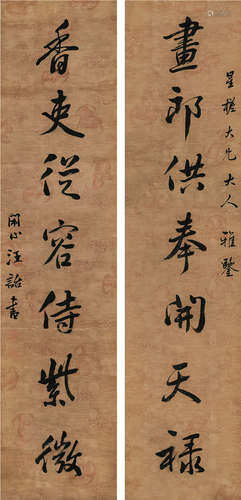 星槎大兄大人雅鑒
畫郎供奉開天祿
香吏從容侍紫薇
閒心汪詒書